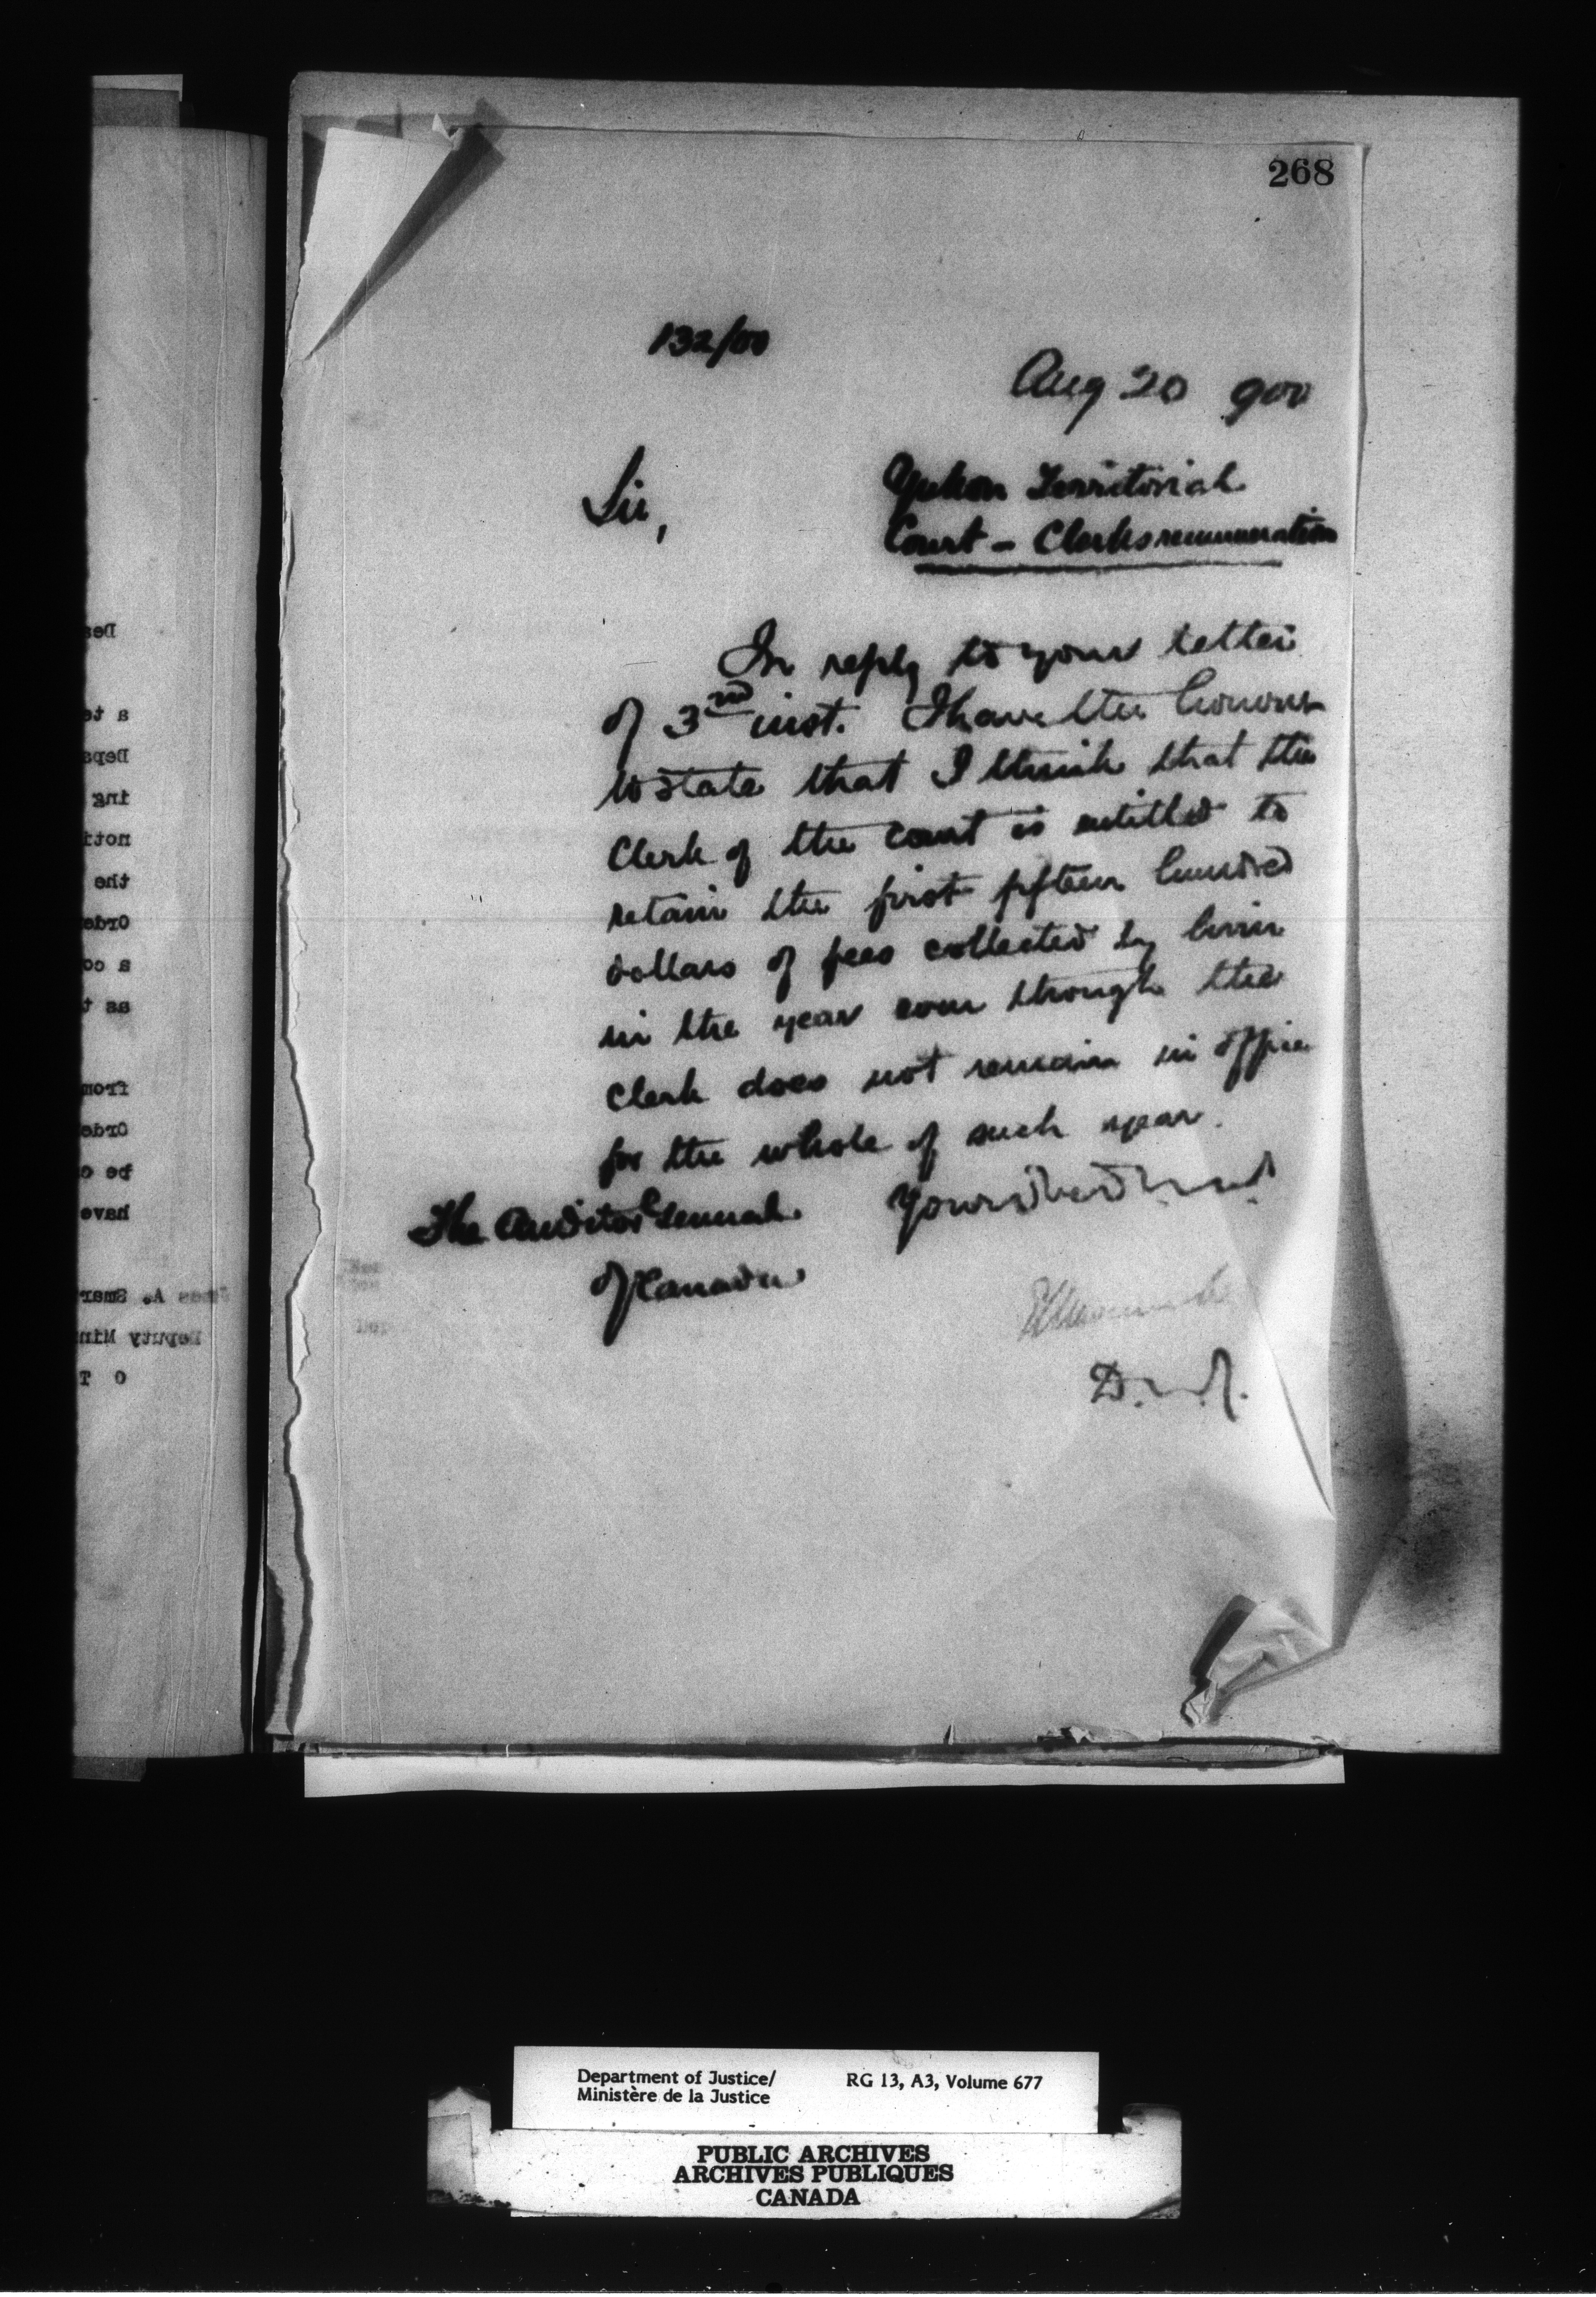 268
132/00
Aug 20 900
Sir,
Yukon Territorial
Court - Clerks remuneration
In reply to your letter
of 3rd inst. I have the honour
to state that I think that the
Clerk of the Court is entitled to
retain the first fifteen hundred
dollars of fees collected by him
in the year even though the
clerk does not remain in office
for the whole of such year.
The Auditor General
of Canada
Your
D. M. J.
Department of Justice/
Ministère de la Justice
RG 13, A3, Volume 677
PUBLIC ARCHIVES
ARCHIVES PUBLIQUES
CANADA